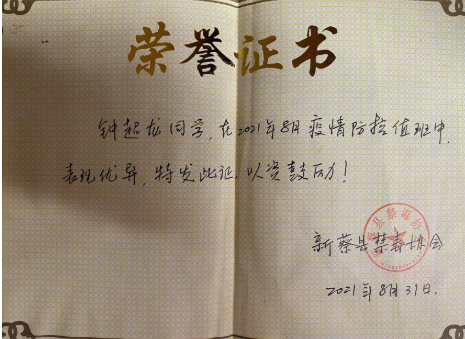 荣誉证书
钟超龙同学,在2021年8月疫情防控值班中,
表现优异,特发此证,以资鼓励!
新蔡县禁毒协会
2021年8月31日.